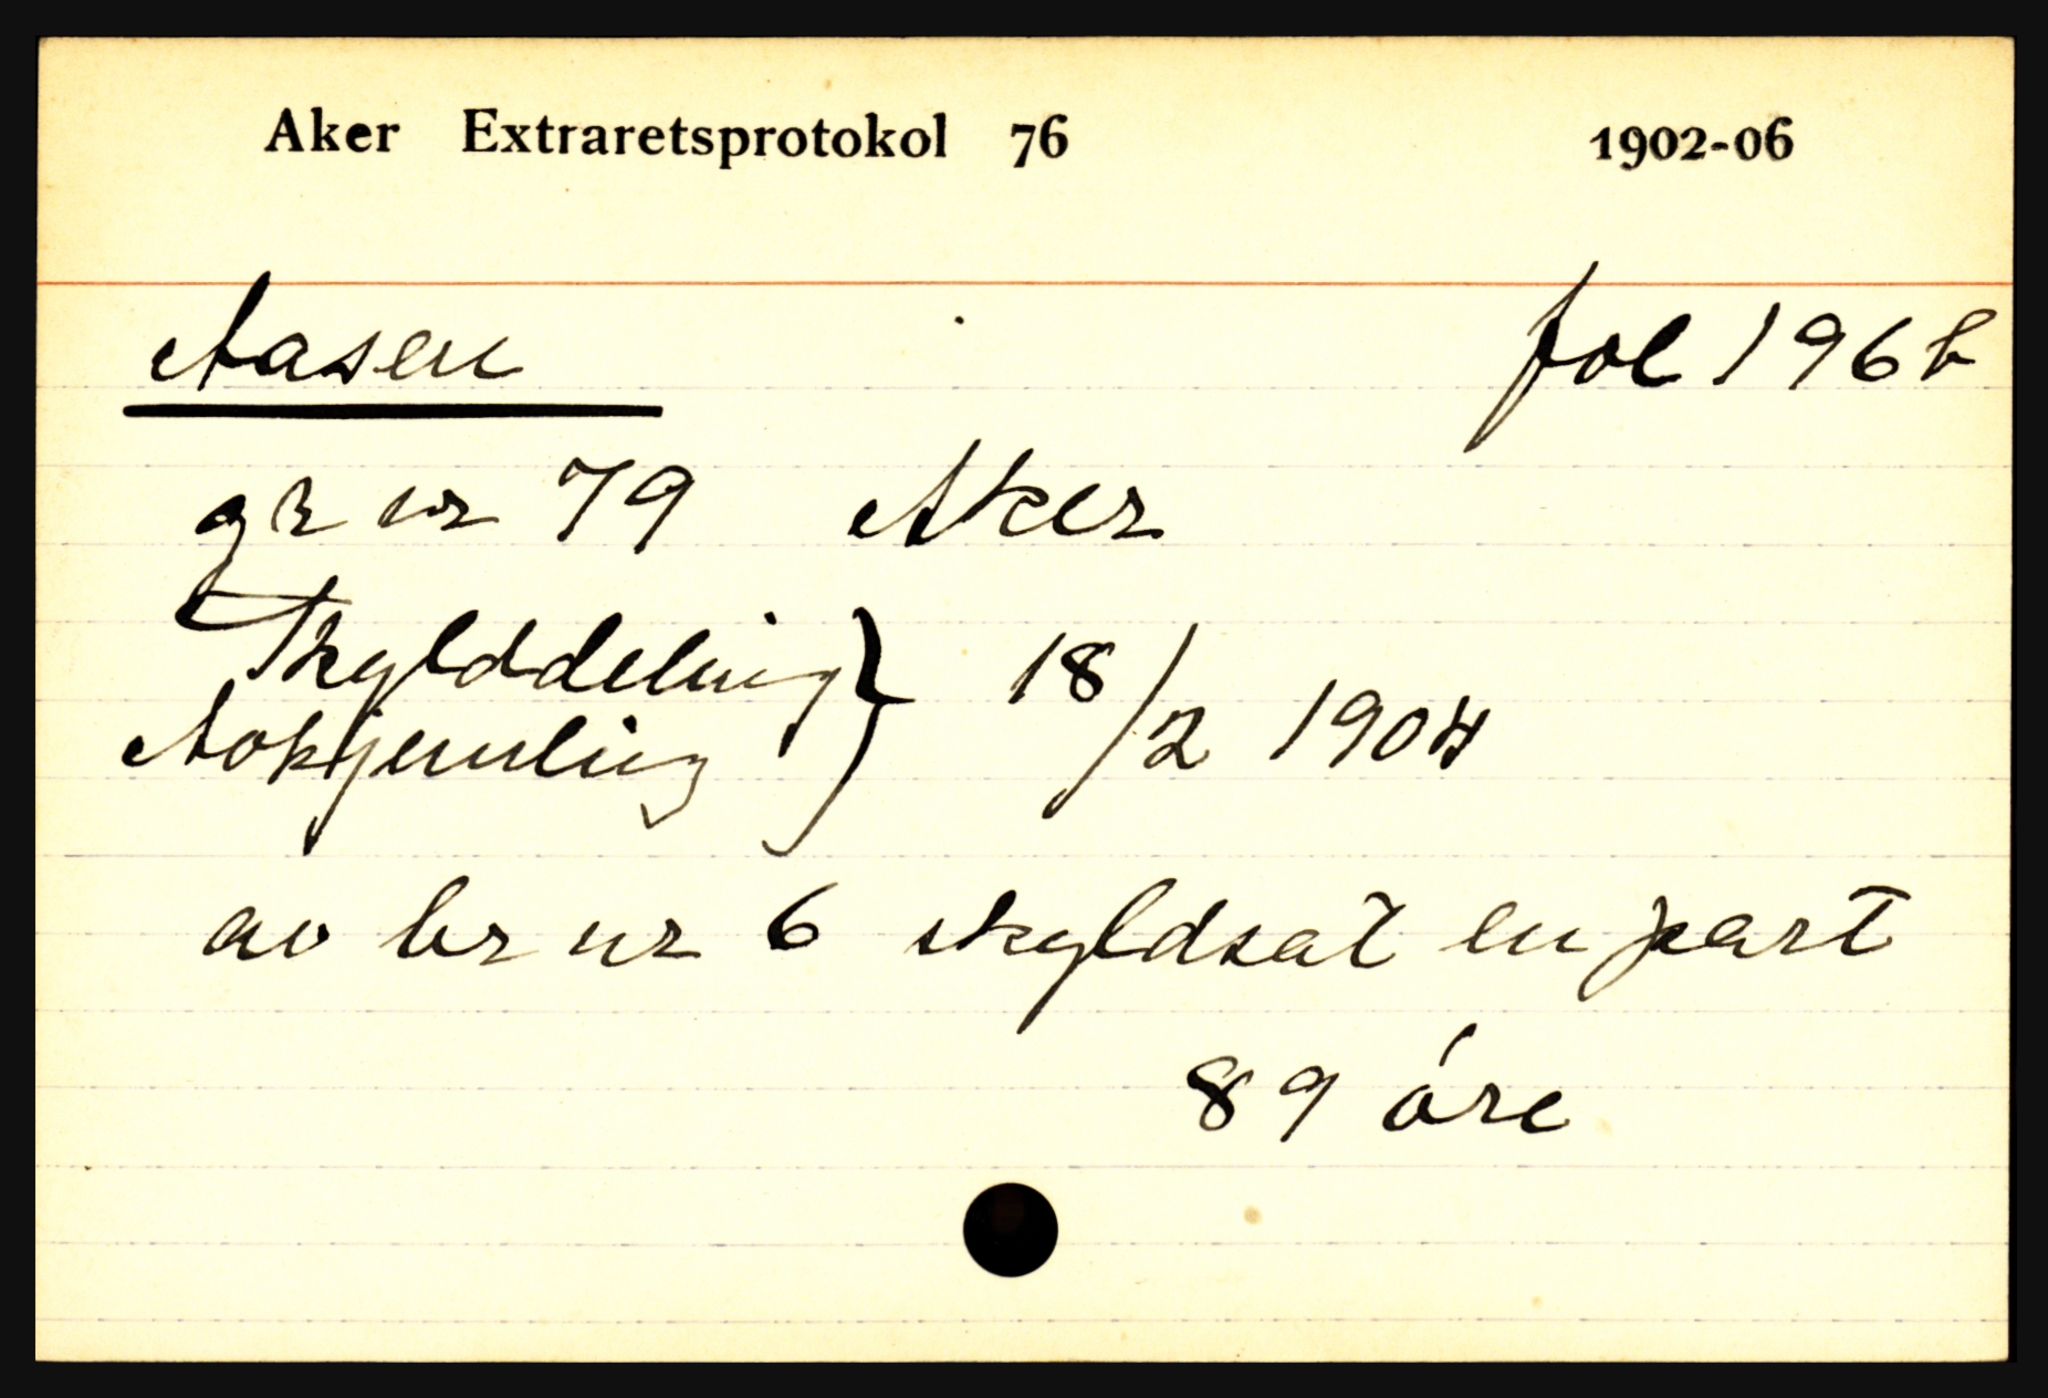 Aker Extraretsprotokol 76 1902-06
Aasen fol 196 b
gr nr 79 Aker
Skylddeling } 18/2 1904
Aokjemling
av br nr 6 skyldsat en part
89 öre